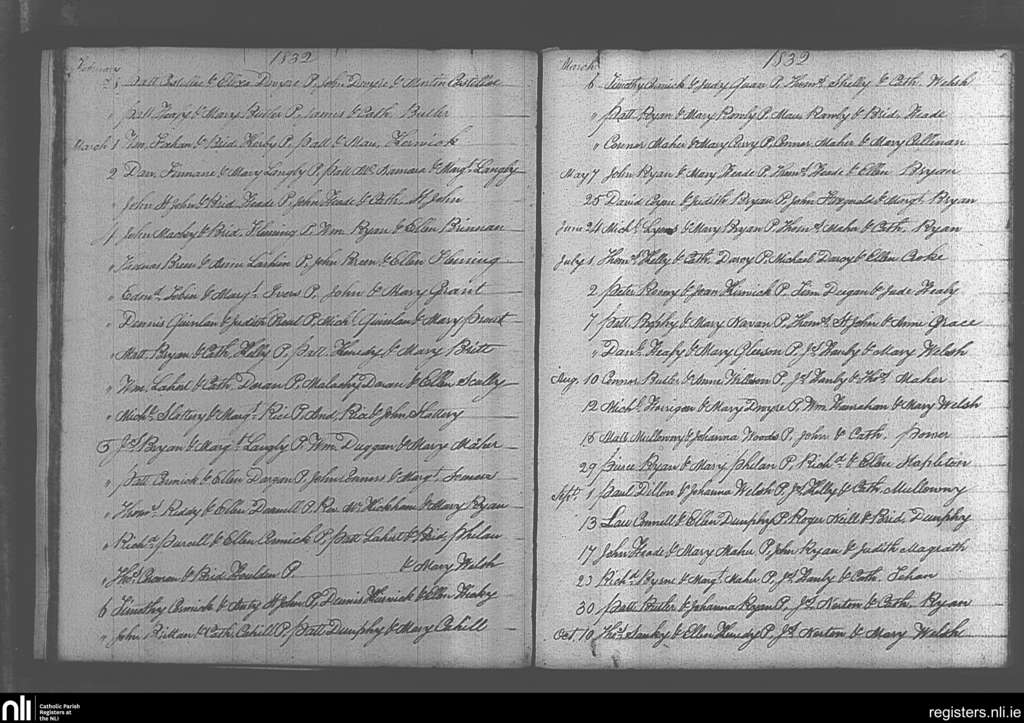 February 1832
28 Patt Costelloe & Eliza Dwyre P, John Dwyre & Martin Costelloe
" Patt Heafy & Mary Butler P, James & Cath. Butler
March 1 Wm. & Brid. P, Patt & Mau.
2 Dan. Finnane & Mary Langly P, McNamara & Margt. Langly
" John St John & Brid. Heade P, John Heade & Cath. St John
4 John Mackey & Brid. Fleming P, Wm. Ryan & Ellen Brinnan
" Breen & Anne Larkin P, John Breen & Ellen Fleming
" Edmd. Tobin & Margt. Ivors P, John & Mary Grant
" Dennis Quinlan & Judith P, Michl. Quinlan & Mary Prout
" Matt. Bryan & Cath. Kelly P, Patt Kenedy & Mary Britt
" Wm. Lahert & Cath. Doran P, Malachy Doran & Ellen Scully
" Michl. Slattery & Margt. Rice P, And. Rice & John Slattery
5 Js. Bryan & Margt. Langly P, Wm. Duggan & Mary Maher
" Patt Cormick & Ellen Dargan P, John Connors & Margt.
" Thoms. Ruddy & Ellen Donnell P, Rev. Mr. Kickham & Mary Ryan
" Richd. Purcell & Ellen Cormick P, Patt Lahert & Brid. Phelan
" Thos. & Brid. Houlden P, & Mary Welsh
6 Timothy Cormick & St John P, Dennis & Ellen Heaby
" John & Cath. Cahill P, Patt Dunphy & Mary Cahill
March 1832
6 Timothy & Judy P, Thoms. Shelly & Cath. Welsh
" Patt Ryan & Mary P, Maur. & Brid. Heade
" Connor Maher & Mary P, Connor Maher & Mary Cullinan
May 7 John Ryan & Mary Heade P, Thoms. Heade & Ellen Bryan
25 David & Judith Bryan P, John Fitzgerald & Margt. Bryan
June 24 Michl. Lyons & Mary Bryan P, Thoms. Maher & Cath. Ryan
July 1 Thoms. Kelly & Cath. Darcy P, Michael Darcy & Ellen Cooke
2 Peter & Joan P, Tim Duigan & Jude Healy
7 Patt Brophy & Mary Kavan P, Thoms. St John & Anne Grace
" Danl. Heafy & Mary Gleeson P, Js. Hanly & Mary Welsh
Aug. 10 Connor Butler & Anne P, Js. Hanly & Thos. Maher
12 Michl. Horrigan & Mary Dwyre P, Wm. Hanrahan & Mary Welsh
15 Matt Mullowny & Johanna Woods P, John & Cath. Power
29 Pierce Ryan & Mary Phelan P, Richd. & Ellen Stapleton
Sept. 1 Paul Dillon & Johanna Welsh P, Js. Kelly & Cath. Mullowny
13 Lau. Connell & Ellen Dunphy P, Roger Neill & Brid. Dunphy
17 John Heade & Mary Maher P, John Ryan & Judith Magrath
23 Richd. Byrne & Margt. Maher P, Js. Hanly & Cath.
30 Patt Butler & Johanna Ryan P, Js. Norton & Cath. Ryan
Oct 10 Thos. & Ellen Kenedy P, Js. Norton & Mary Welsh
nli Catholic Parish Registers at the NLI
registers.nli.ie